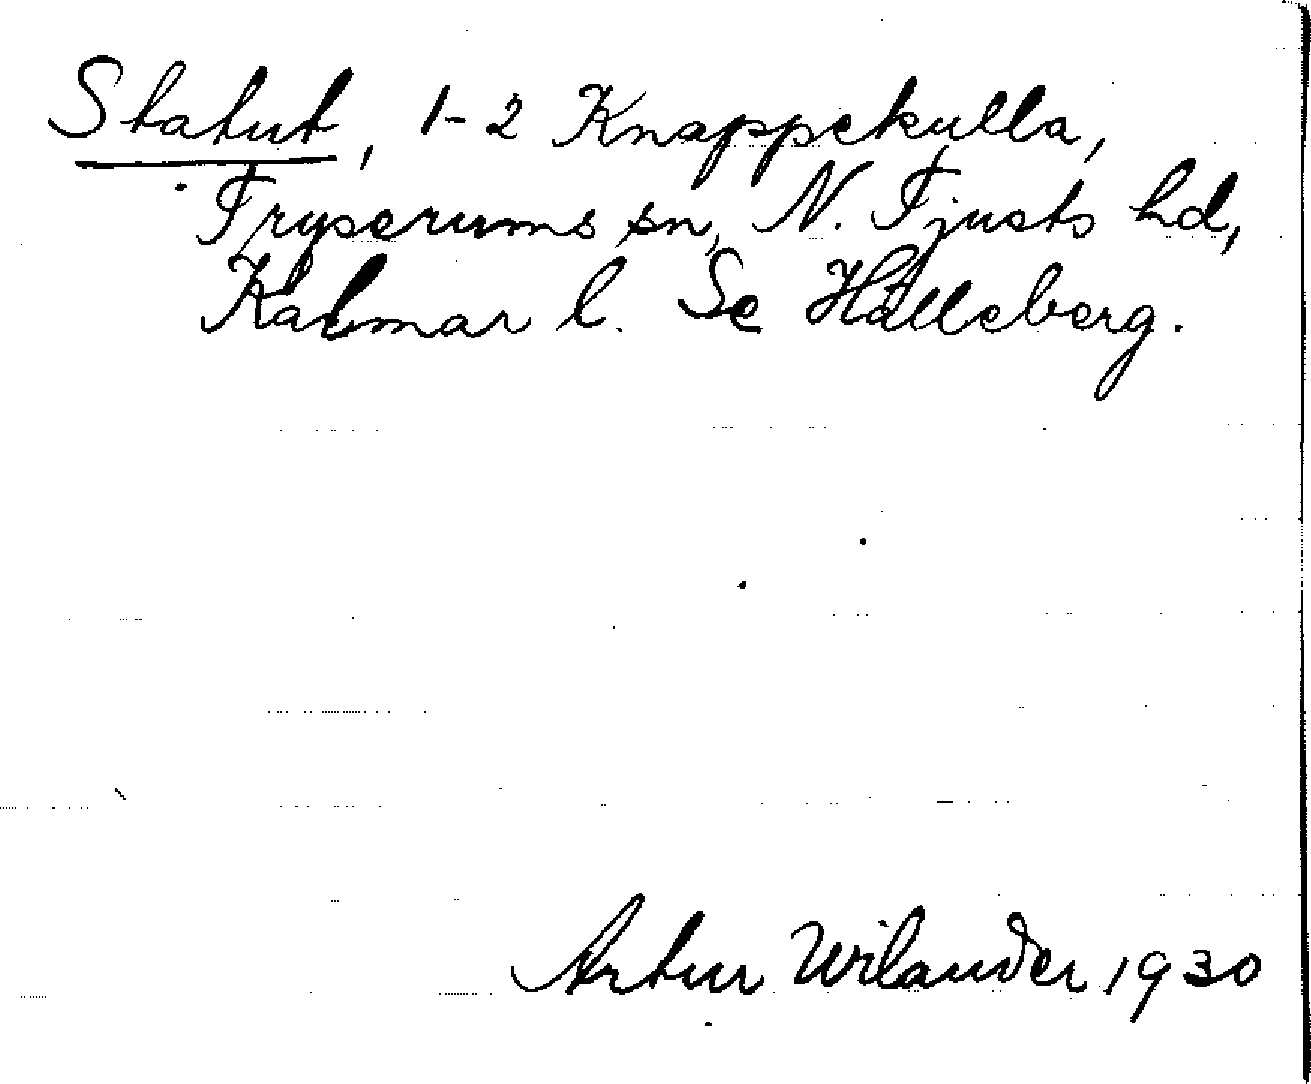 Statut, 1-2 Knappekulla,
Tryserums sn, N. Tjusts hd,
Kalmar l. Se Hålleberg.
Artur Wilander 1930